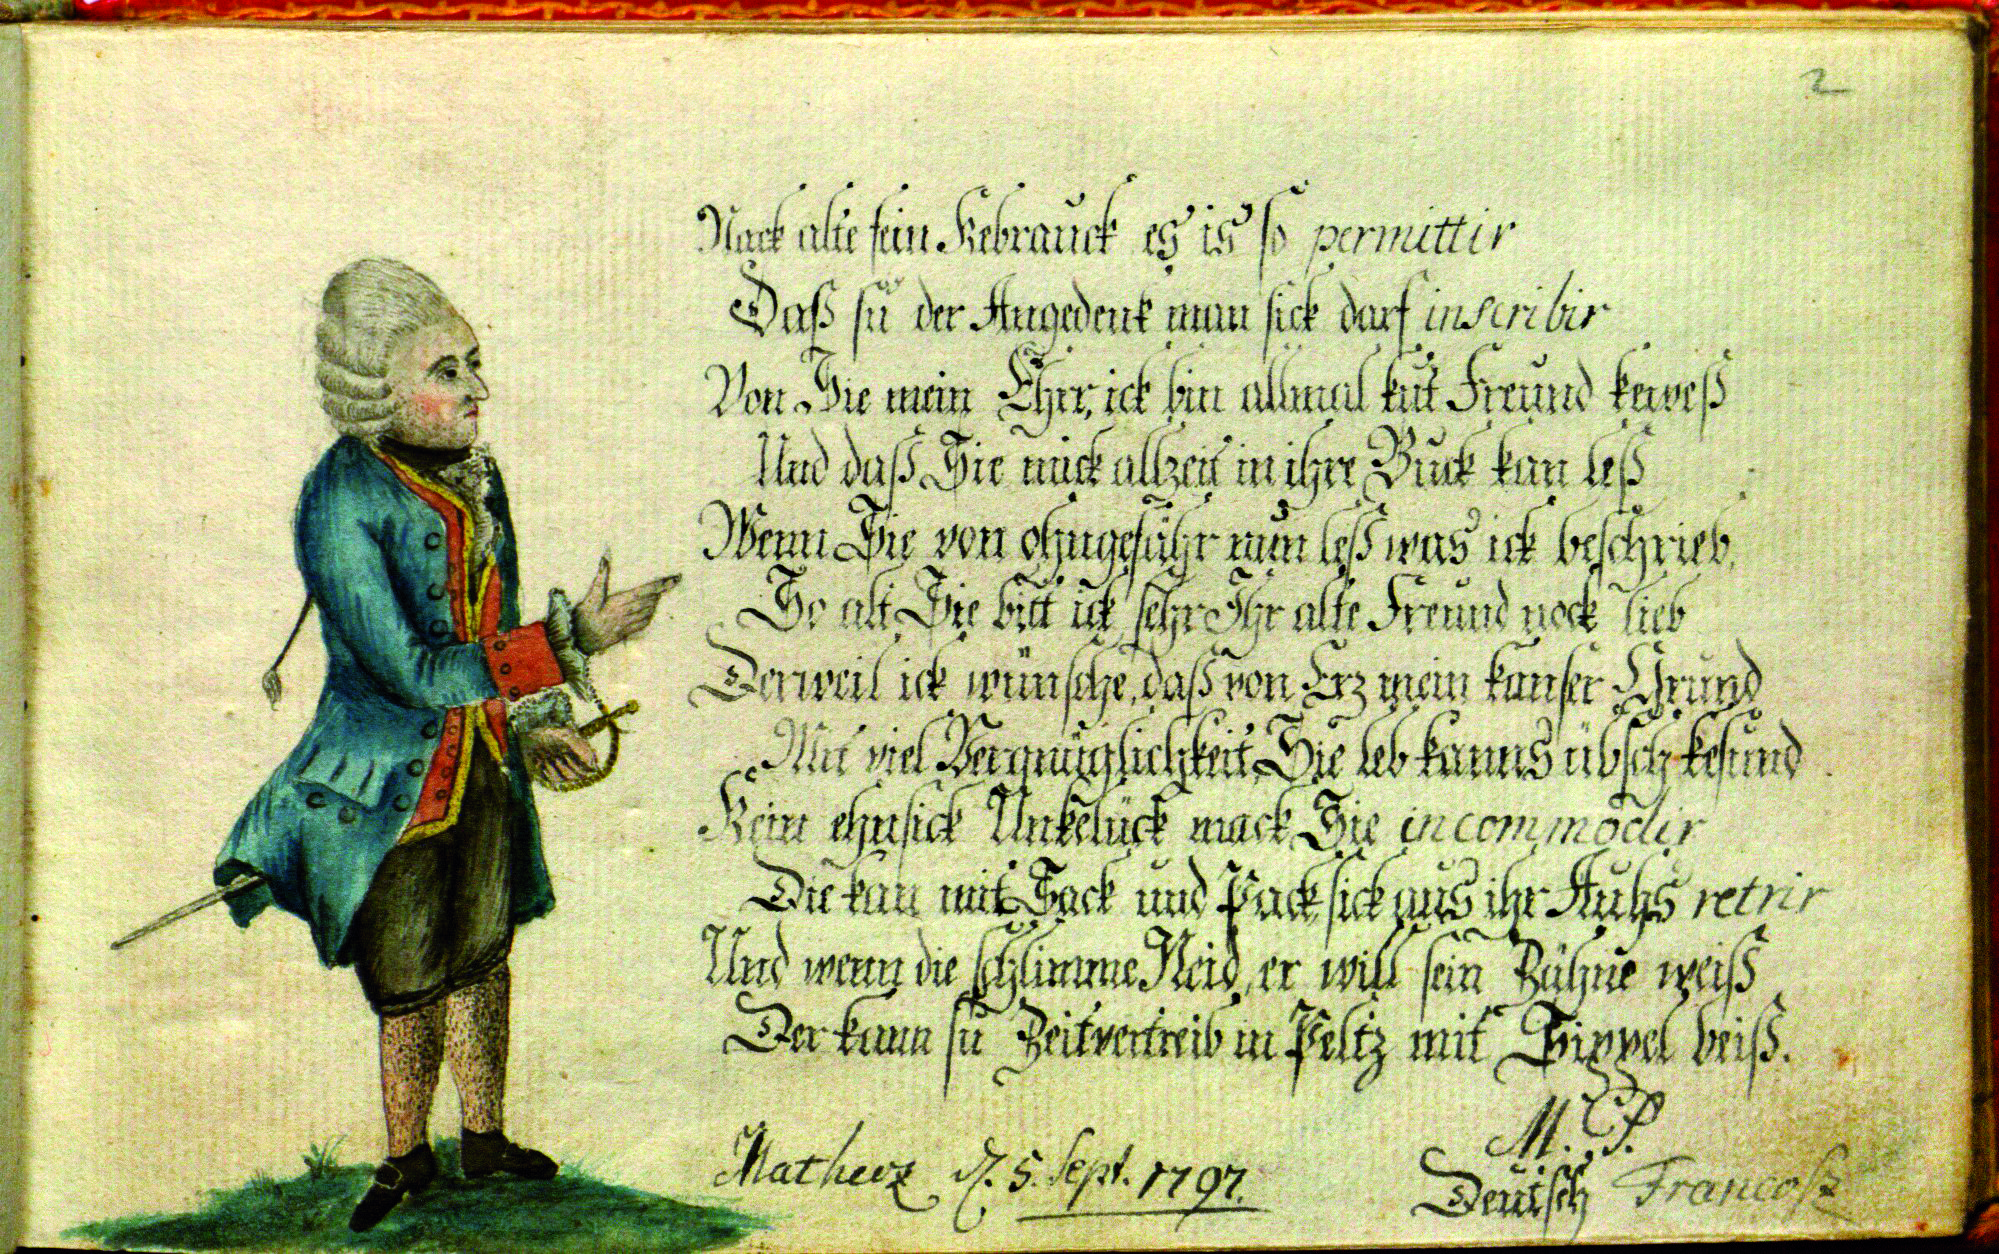 2
Nack alte sein Kebrauck es is so permittir
Daß su der Angedenk man sick darf inscribir
Von Sie mein Ehrr, ick bin allmal kut Freund keweß
Und daß Sie mick allzeit in ihre Buck kan leß
Wenn Sie von ohngefähr nun leß was ick beschrieb,
So alt Sie bitt ick sehr Ihr alte Freund nock lieb
Derweil ick wünsche, daß von Erz mein kanser Grund
Mit viel Vergnüglichkeit, Sie leb kanns übsch kesund
Kein ehnsick Unkelück mack Sie incommodir
Die kan mit Sack und Pack sick aus ihr Auhs retrir
Und wenn die schlimme Neid, er will sein Zähne weiß
Der kann su Zeitvertreib in Peltz mit Sippel beiß.
M. P.
Deutsch Francosz
d. 5. Sept. 1797.